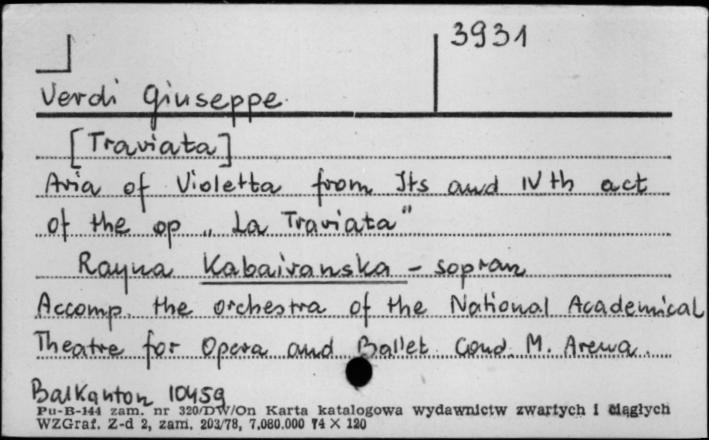 3931
Verdi Giuseppe
[Traviata]
Aria of Violetta from Its and IVth act
of the op „La Traviata"
Rayna Kabaivanska - sopran
Accomp. the orchestra of the National Academical
Theatre for Opera and Ballet Cond. M. Arewa
Balkanton 10459
Pu-B-144 zam. nr 320/DW/On Karta katalogowa wydawnictw zwartych i ciągłych
WZGraf. Z-d 2, zam. 203/78, 7.080.000 74 × 120